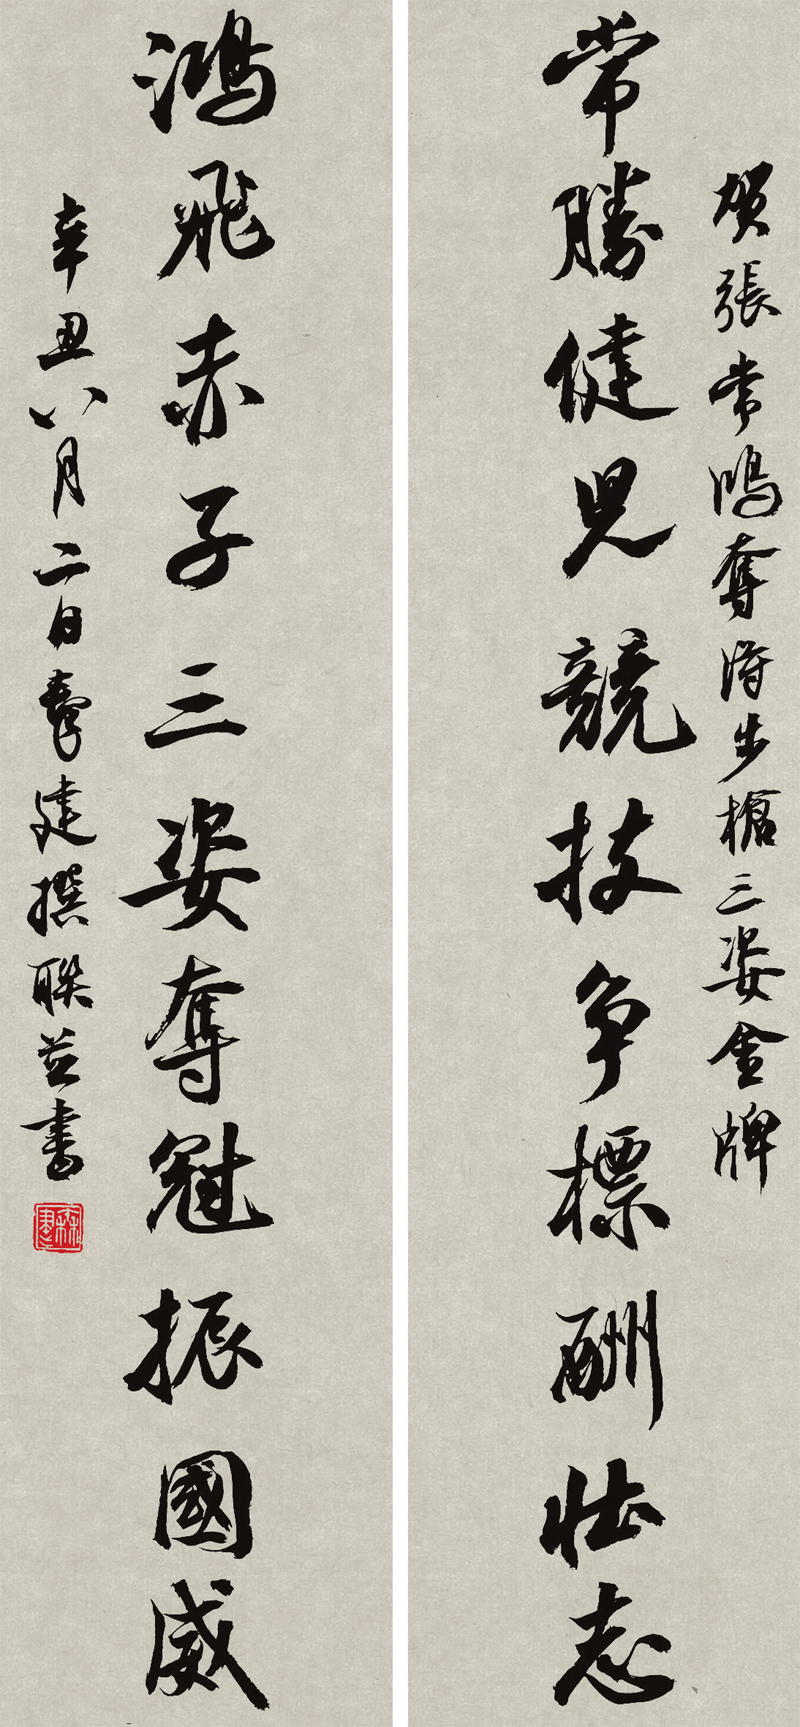 贺張常鴻奪得步槍三姿金牌
常勝健兒競技争標酬壯志
鴻飛赤子三姿奪冠振國威
辛丑八月二日建撰聯並書